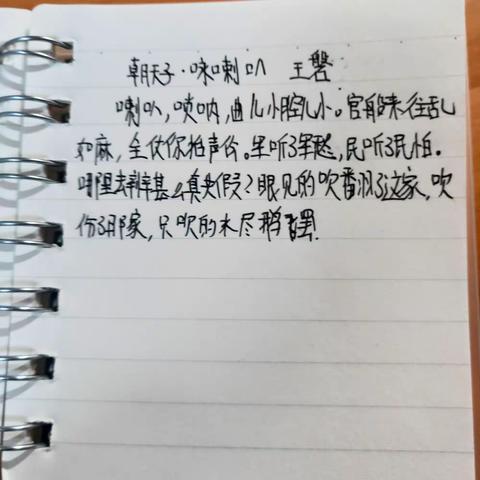 朝天子·咏喇叭 王磐
喇叭，唢呐，曲儿小腔儿小。官船来往乱
如麻，全仗你抬声价。军听了军愁，民听了民怕。
哪里去辨甚么真共假？眼见的吹翻了这家，吹
伤了那家，只吹的水尽鹅飞罢！